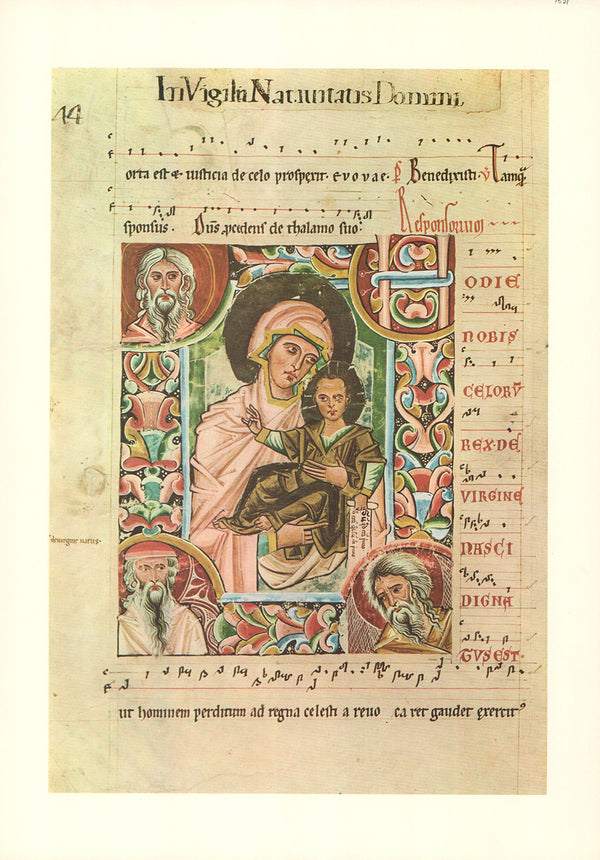 In Vigilia Natiuitatis Domini.
44
orta est & iusticia de celo prospexit. e v o v a e. p̄ Benedixisti. v̄ Tamq̄
sponsus. Dn̄s p̄cedens de thalamo suo.
Responsoriu
ODIE
NOBIS
CELORV̄
REX·DE
VIRGINE
NASCI
DIGNA
TVS EST·
de uirgine natus.
ut hominem perditum ad regna celesti a reuo ca ret gaudet exercit᾿